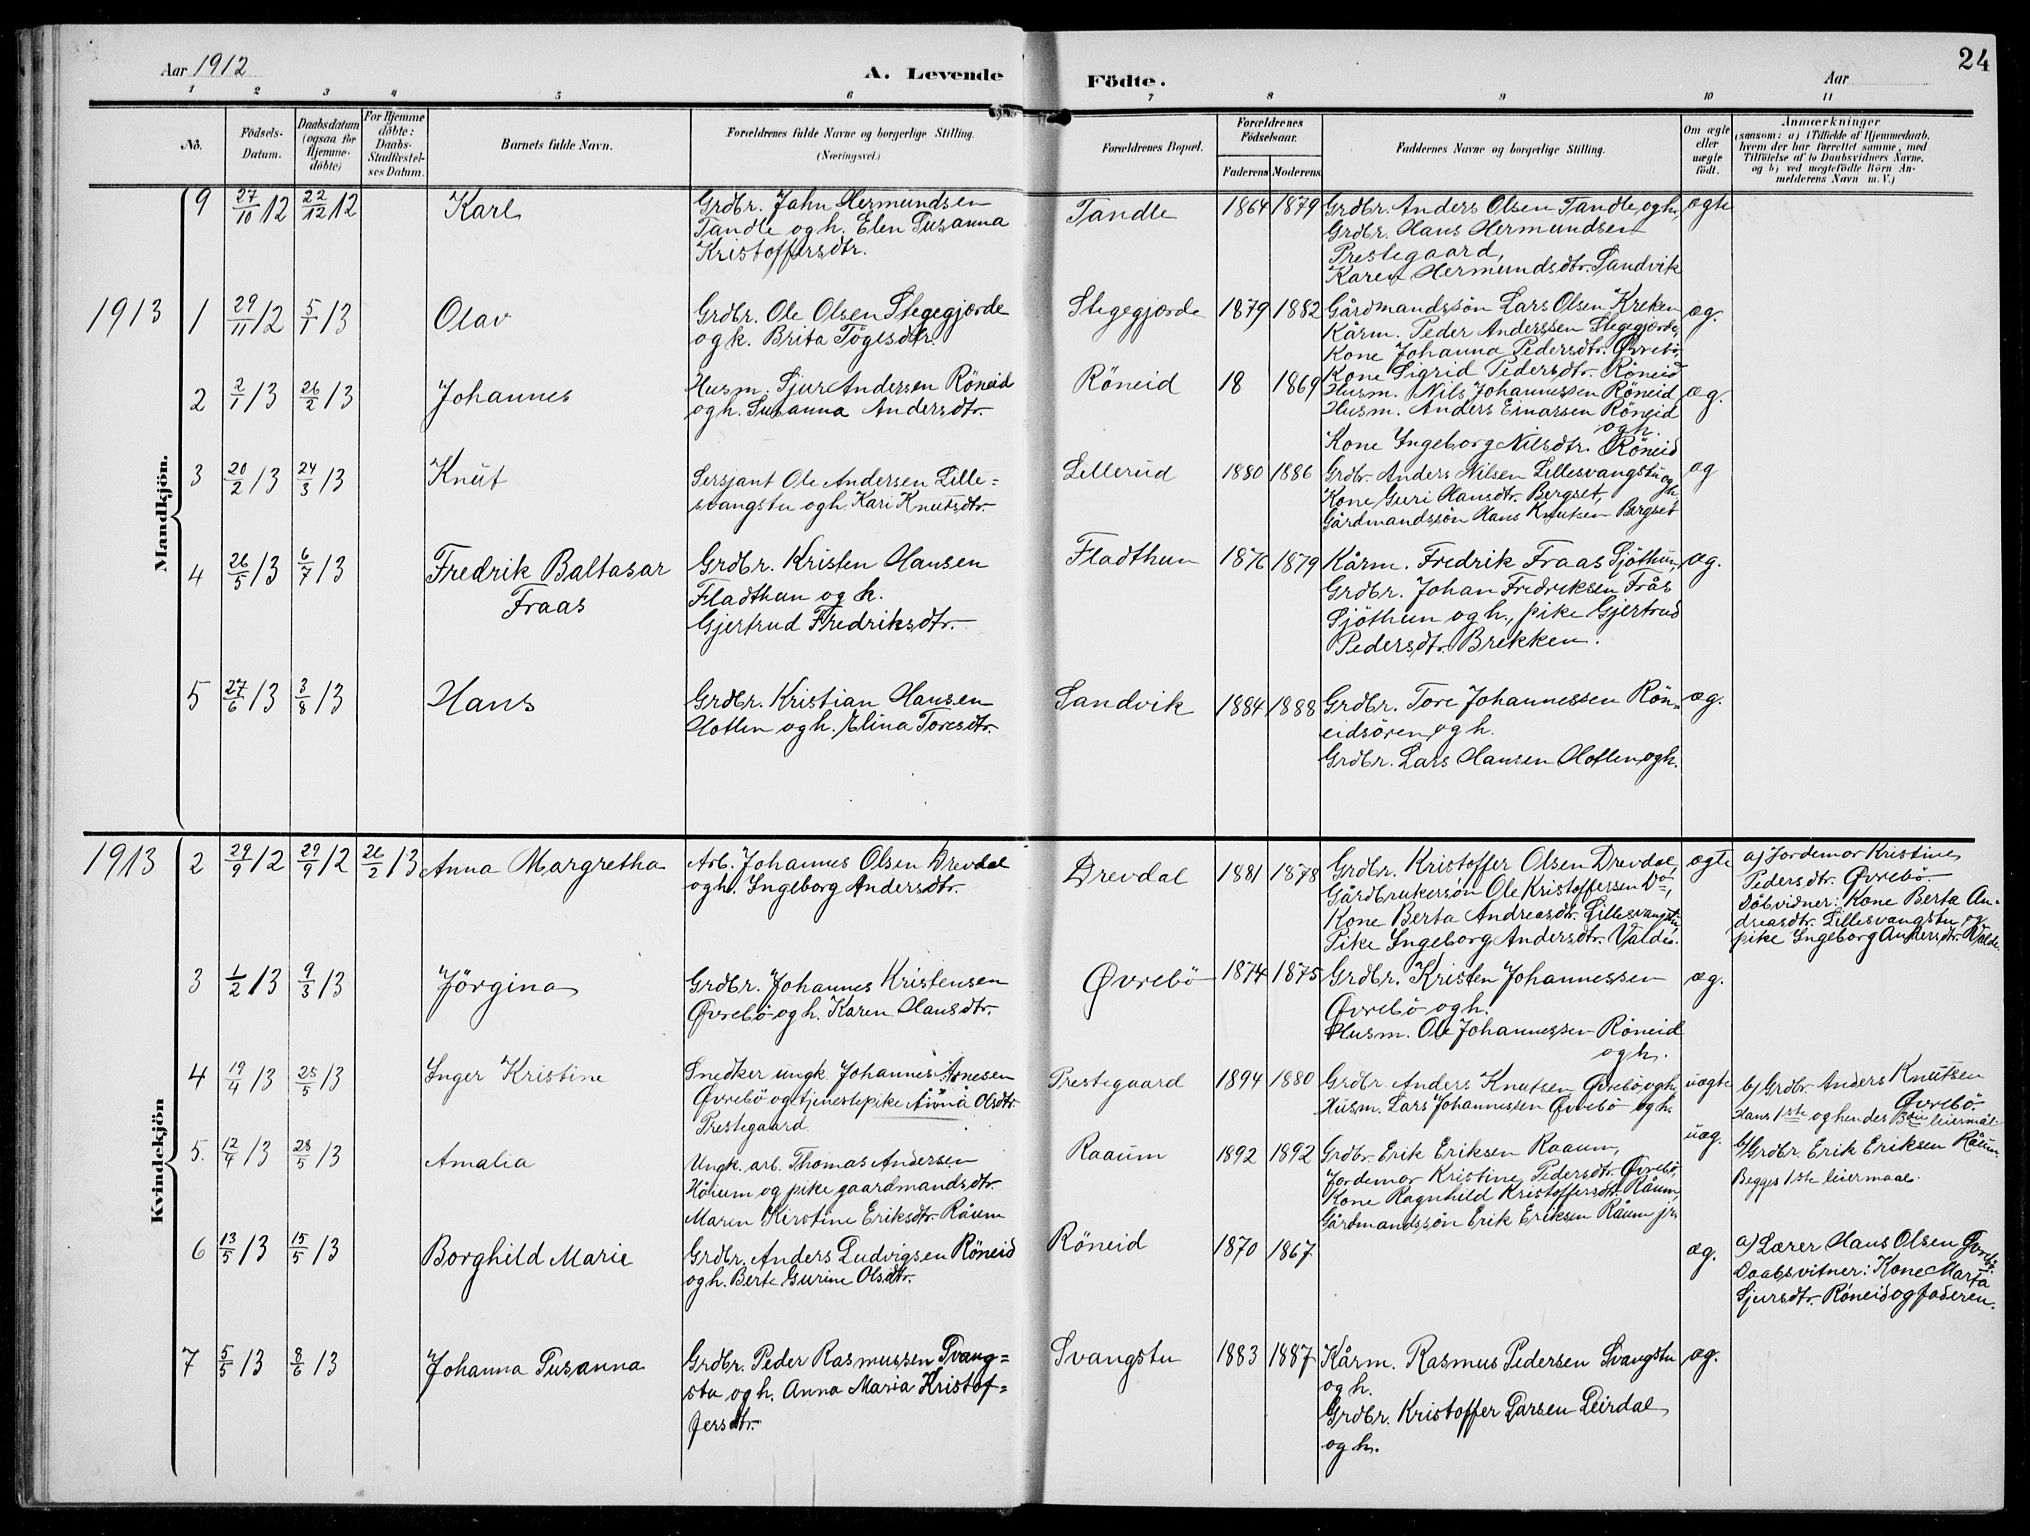 24
Aar 1912
A. Levende
Födte.
Aar
1 2 3 4 5 6 7 8 9 10 11
No.
Födsels-
Datum.
Daabsdatum
(ogsaa for
Hjemme-
döbte)
For Hjemme
döbte:
Daabs-
Stadfæstel-
ses Datum.
Barnets fulde Navn.
Forældrenes fulde Navne og borgerlige Stilling.
(Næringsvei.)
Forældrenes Bopæl.
Forældrenes
Födselsaar.
Faderens Moderens
Faddernes Navne og borgerlige Stilling.
Om ægte
eller
uægte
födt.
Anmærkninger
(saasom: a) i Tilfælde af Hjemmedaab,
hvem der har forrettet samme, med
Tilföielse af to Daabsvidners Navne,
og b) ved uægtefödte Börn An-
melderens Navn m. V.)
Mandkjön.
9 27/10 12 22/12 12 Karl
Grdbr. Jahn Hermundsen
Sandle og h. Elen Susanna
Kristoffersdtr.
Sandle 1864 1879
Grdbr. Anders Olsen Sandle og h,
Grdbr. Hans Hermundsen
Prestegaard,
Karen Hermundsdtr. Sandvik
ægte
1913 1 29/11 12 5/1 13 Olav
Grdbr. Ole Olsen Stegegjerde
og k. Brita Tögesdtr.
Stegegjerde 1879 1882
Gårdmandssön Lars Olsen Kreken
Kårm. Peder Anderssen Stegegjerde,
Kone Johanna Pedersdtr. Øvrebö
Kone Sigrid Pedersdtr. Röneid
æg.
2 2/1 13 26/2 13 Johannes
Husm. Sjur Andersen Röneid
og h. Susanna Andersdtr.
Röneid 18 1869
Husm. Nils Johannessen Röneid
Husm. Anders Einarsen Röneid
og h.
Kone Ingeborg Nilsdtr. Röneid
æg.
3 20/2 13 24/3 13 Knut
Sersjant Ole Andersen Lille=
svangstu og h. Kari Knutsdtr.
Lillerud 1880 1886
Grdbr. Anders Nilsen Lillesvangstu og
h,
Kone Guri Hansdtr. Bergset
Gårdmandssön Hans Knutsen Bergset
æg
4 26/5 13 6/7 13 Fredrik Baltasar
Fraas
Grdbr. Kristen Hansen
Fladthun og h.
Gjertrud Fredriksdtr.
Fladthun 1876 1879
Kårm. Fredrik Fraas Sjöthun,
Grdbr. Johan Fredriksen Frås
Sjöthun og h., pike Gjertrud
Pedersdtr. Brekken.
æg.
5 27/6 13 3/8 13 Hans
Grdbr. Kristian Hansen
Hotlen og h. Elina Toresdtr.
Sandvik 1884 1888
Grdbr. Tore Johannessen Rön=
eidsören og h.
Grdbr. Lars Hansen Hotlen og h.
æg.
Kvindekjön
1913 2 29/9 12 29/9 12 26/2 13 Anna Margretha
Arb. Johannes Olsen Drevdal
og h. Ingeborg Andersdtr.
Drevdal 1881 1878
Grdbr. Kristoffer Olsen Drevdal,
Gårdbrukersön Ole Kristoffersen Do,
Kone Berta Andreasdtr. Lillesvangstu
Pike Ingeborg Andersdtr. Valde.
ægte
a) Jordemor Kristine
Pedersdtr. Øvrebö.
Döbvidner: Kone Berta An-
dreasdtr. Lillesvangstu og
pike Ingeborg Andersdtr. Valde.
3 1/2 13 9/3 13 Jörgina
Grdbr. Johannes Kristensen
Øvrebö og h. Karen Hansdtr.
Øvrebö 1874 1875
Grdbr. Kristen Johannessen
Øvrebö og h.
Husm. Ole Johannessen Röneid
og h.
æg.
4 19/4 13 25/5 13 Inger Kristine
Snedker ungk. Johannes Arnesen
Øvrebö og tjenestepike Anna Olsdtr.
Prestegaard.
Prestegaard 1894 1880
Grdbr. Anders Knutsen Øvrebö og h,
Husm. Lars Johannessen Øvrebö og h.
uægte
b) Grdbr. Anders Knutsen
Øvrebö.
Hans 1ste og hendes 3die leiermål
5. 12/4 13 25/5 13 Amalia
Ungk. arb. Thomas Andersen
Höium og pike gaardmandsdtr.
Maren Kirstine Eriksdtr. Råum
Raaum 1892 1892
Grdbr. Erik Eriksen Raaum,
Jordemor Kristine Pedersdtr. Øvrebö,
Kone Ragnhild Kristoffersdtr. Råum,
Gårdmandssön Erik Eriksen Råum jr.
uæg.
b) Grdbr. Erik Eriksen Råum
Begges 1ste leiermaal.
6 13/5 13 15/5 13 Borghild Marie
Grdbr. Anders Ludvigsen Röneid
og h. Berte Gurine Olsdtr.
Röneid 1870 1867
æg.
a) Lærer Hans Olsen Øvrebö.
Daabsvitner: Kone Marta
Sjursdtr. Röneid og faderen.
7 5/5 13 8/6 13 Johanna Susanna
Grdbr. Peder Rasmussen Svang=
stu og h. Anna Maria Kristof=
fersdtr.
Svangstu 1883 1887
Kårm. Rasmus Pedersen Svangstu
og h.
Grdbr. Kristoffer Larsen Leirdal
og h.
æg.